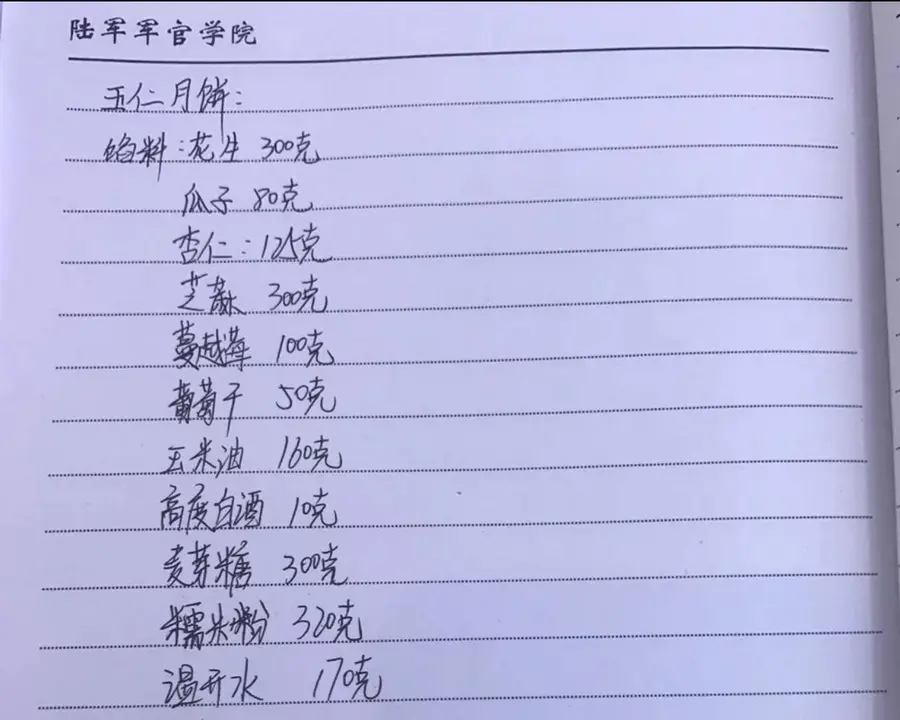 陆军军官学院
五仁月饼:
馅料:花生 300克
瓜子 80克
杏仁:125克
芝麻 300克
蔓越莓 100克
葡萄干 50克
玉米油 160克
高度白酒 10克
麦芽糖 300克
糯米粉 320克
温开水 170克